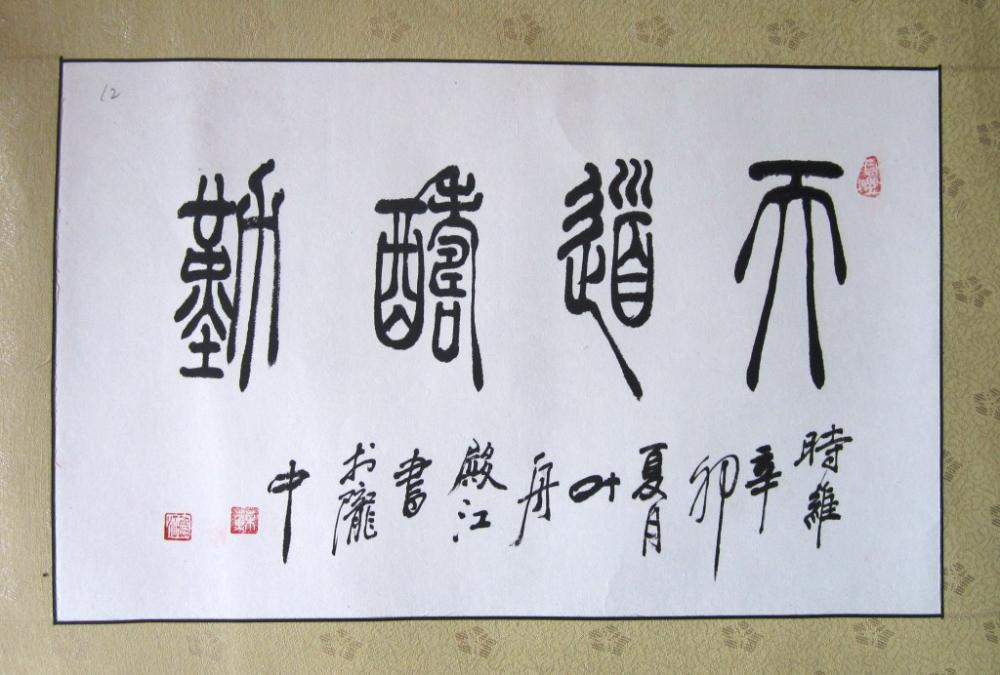 12
天道醻勤
時維辛卯夏月叶舟殿江書於隴中